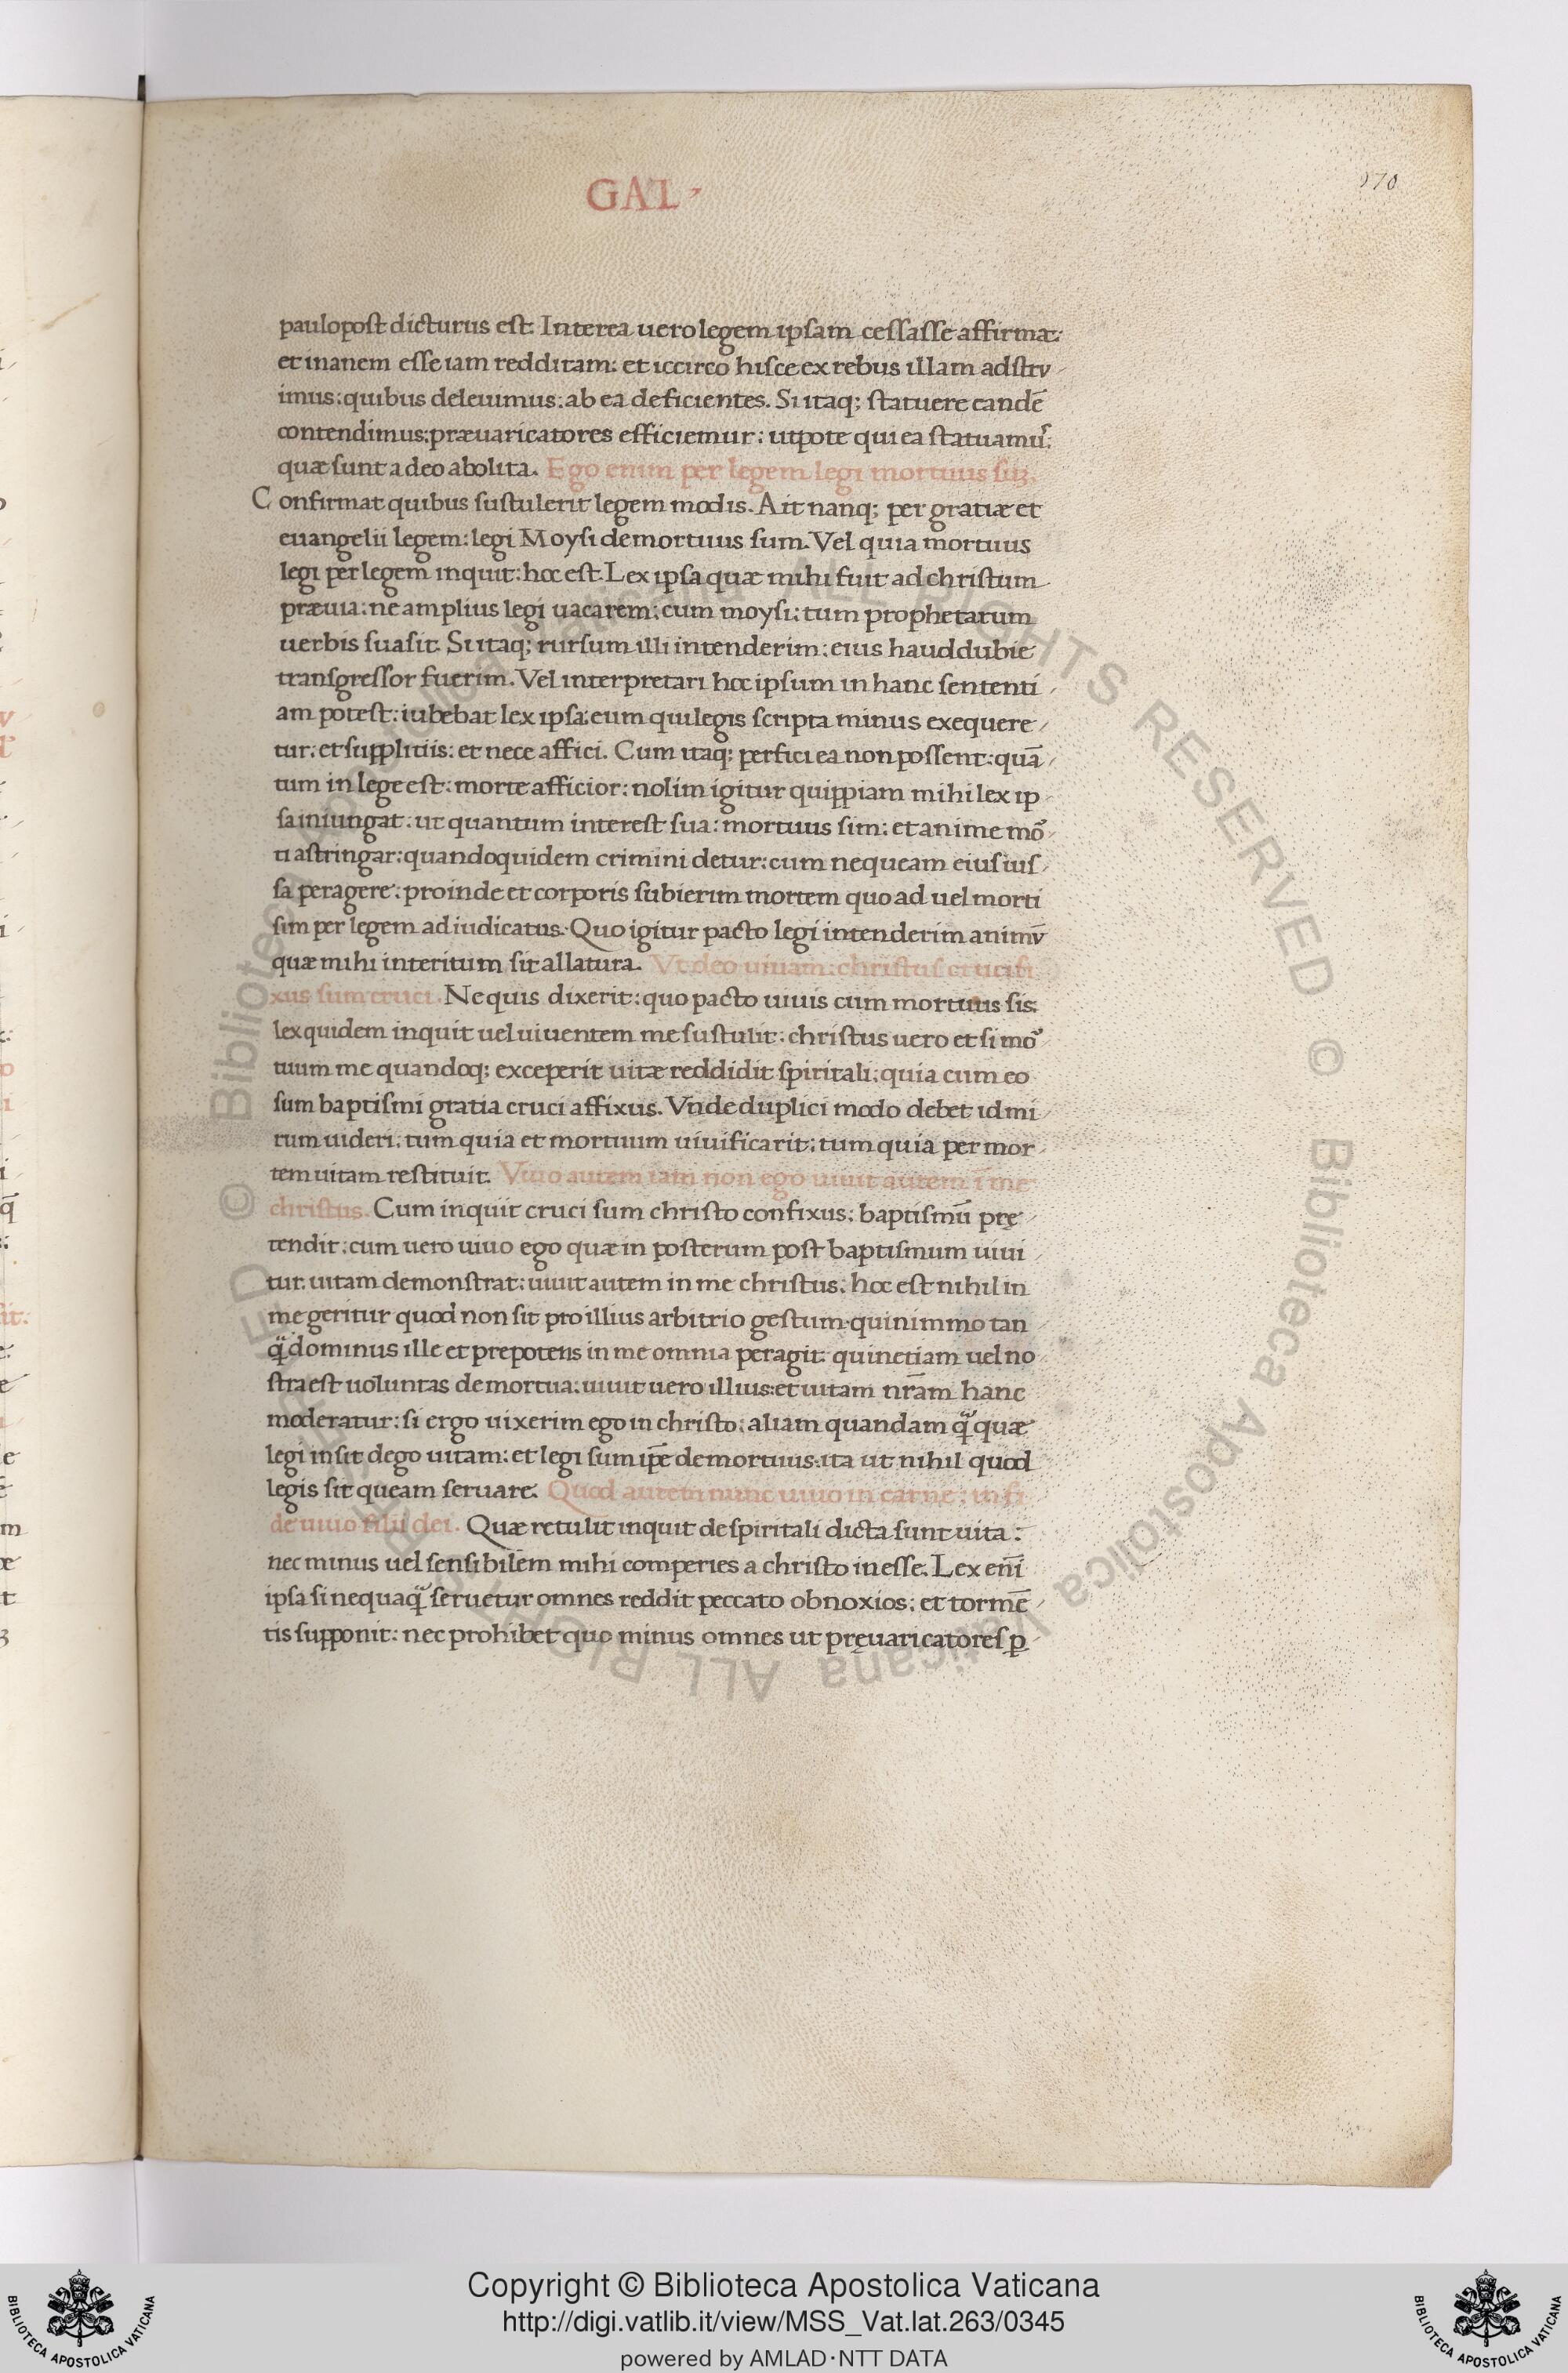 GAL
170
paulopost dicturus est. Interea uero legem ipsam cessasse affirmat:
et inanem esse iam redditam: et iccirco hisce ex rebus illam adstrv
imus: quibus deleuimus: ab ea deficientes. Si itaq; statuere eandē
contendimus: præuaricatores efficiemur: utpote qui ea statuamuſ:
quæ sunt adeo abolita. Ego enim per legem legi mortuus suȝ.
Confirmat quibus sustulerit legem modis. Ait nanq; per gratiæ et
euangelii legem: legi Moysi demortuus sum. Vel quia mortuus
legi per legem inquit: hoc est. Lex ipsa quæ mihi fuit ad christum
præuia: ne amplius legi uacarem: cum moysi: tum prophetarum
uerbis suasit. Si itaq; rursum illi intenderim: eius haud dubie
transgressor fuerim. Vel interpretari hoc ipsum in hanc sententi
am potest: iubebat lex ipsa: eum qui legis scripta minus exequere
tur: et supplitiis: et nece affici. Cum itaq; perfici ea non possent: quā
tum in lege est: morte afficior: nolim igitur quippiam mihi lex ip
sa iniungat: ut quantum interest sua: mortuus sim: et anime mor̄
ti astringar: quandoquidem crimini detur: cum nequeam eius ius
sa peragere: proinde et corporis subierim mortem quo ad uel morti
sim per legem adiudicatus. Quo igitur pacto legi intenderim animv̄
quæ mihi interitum sit allatura. Vt deo uiuam: christus crucifi
xus sum cruci. Ne quis dixerit: quo pacto uiuis cum mortuus sis:
lex quidem inquit uel uiuentem me sustulit: christus uero et si mor̄
tuum me quandoq; exceperit uitæ reddidit spiritali: quia cum eo
sum baptismi gratia cruci affixus. Vnde duplici modo debet id mi
rum uideri: tum quia et mortuum uiuificarit: tum quia per mor
tem uitam restituit. Viuo autem iam non ego uiuit autem ī me
christus. Cum inquit cruci sum christo confixus: baptismū prę
tendit: cum uero uiuo ego quæ in posterum post baptismum uiui
tur. uitam demonstrat: uiuit autem in me christus: hoc est nihil in
me geritur quod non sit pro illius arbitrio gestum. quinimmo tan
q̄ dominus ille et prepotens in me omnia peragit. quinetiam uel no
stra est uoluntas demortua: uiuit uero illius: et uitam nr̄am hanc
moderatur: si ergo uixerim ego in christo: aliam quandam q̄ quæ
legi insit dego uitam: et legi sum ip̄e demortuus: ita ut nihil quod
legis sit queam seruare. Quod autem nunc uiuo in carne: in fi
de uiuo filii dei. Quæ retulit inquit de spiritali dicta sunt uita:
nec minus uel sensibilem mihi comperies a christo inesse. Lex enī
ipsa si nequaq̄ seruetur omnes reddit peccato obnoxios: et tormē
tis supponit: nec prohibet quo minus omnes ut pręuaricatores ꝑ
© Biblioteca Apostolica Vaticana ALL RIGHTS RESERVED © Biblioteca Apostolica Vaticana ALL RIGHTS RESERVED
Copyright © Biblioteca Apostolica Vaticana
http://digi.vatlib.it/view/MSS_Vat.lat.263/0345
powered by AMLAD·NTT DATA
BIBLIOTECA APOSTOLICA VATICANA
BIBLIOTECA APOSTOLICA VATICANA